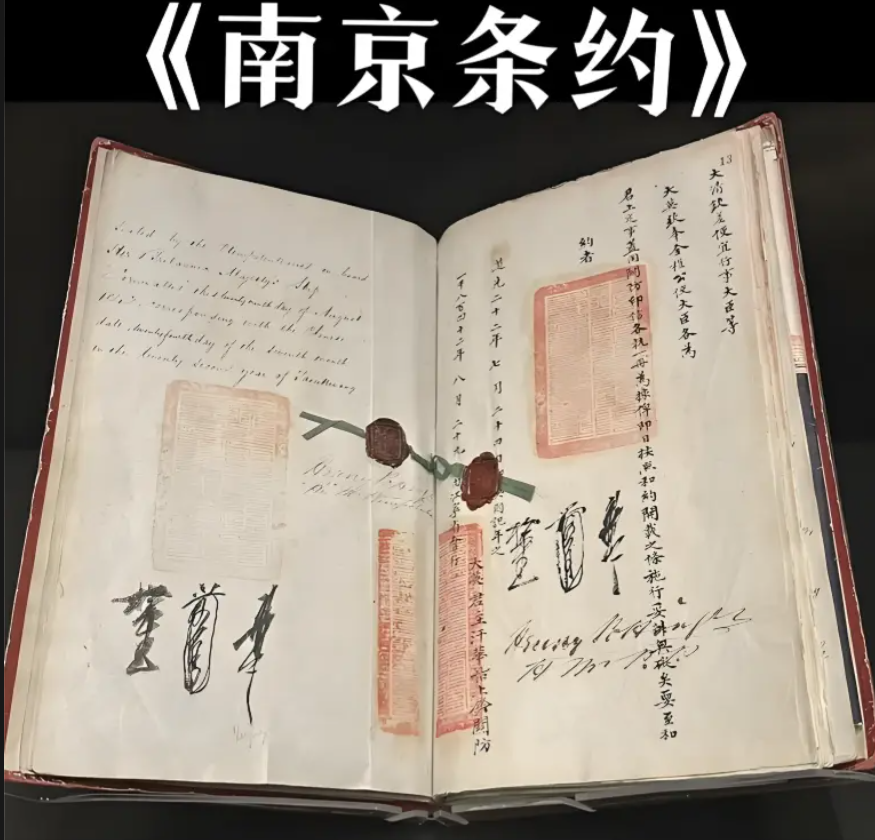 《南京条约》
Sealed by the Plenipotentiaries on board
Her Britannic Majesty's Ship
Cornwallis this twenty ninth day of August
1842, corresponding with the Chinese
date twenty fourth day of the seventh month
in the twenty second year of Taoukwang
13
大清欽差便宜行事大臣等
大英欽奉全權公使大臣各為
君上定事蓋用關防印信各執一冊為據俾即日按照和約開載之條施行妥辦無礙矣要至和
約者
道光二十二年七月二十四日英國記年之
一千八百四十二年八月二十九日由江寧省會行
大英君主汗華船上鈐關防
Henry Pottinger